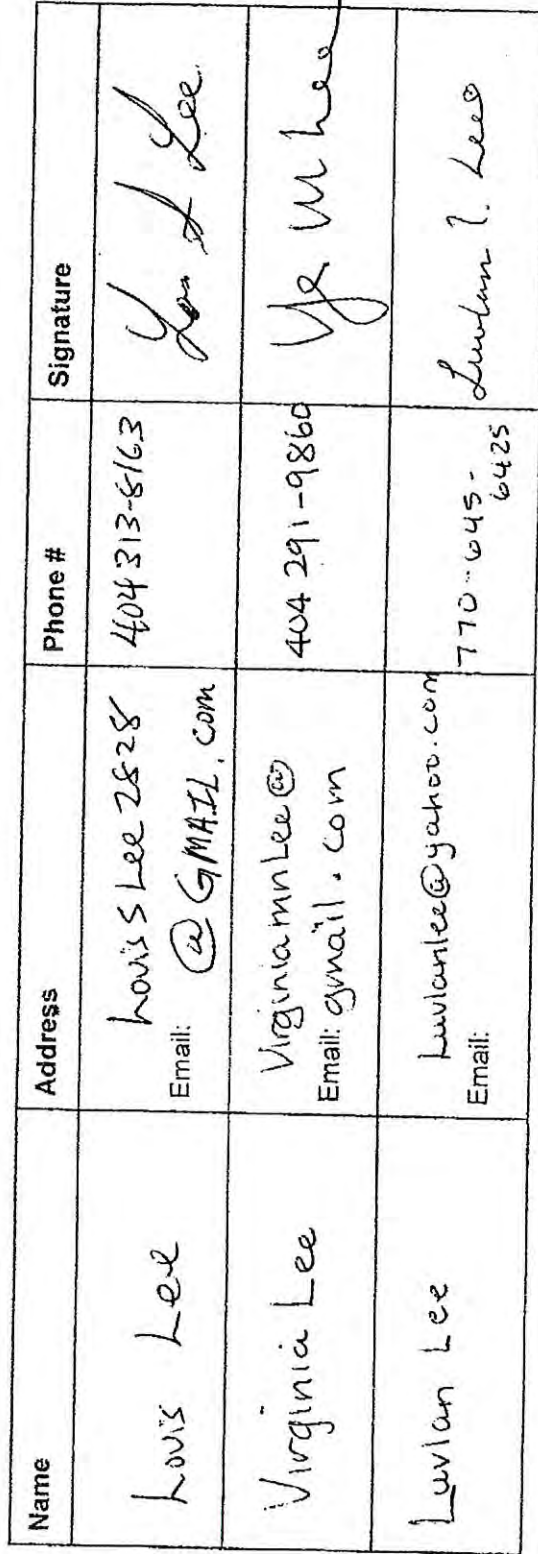 Name Address Phone # Signature
Louis Lee
Louis S Lee 2828
Email: @ GMAIL.com
404 313-8163
Lou S Lee
Virginia Lee
VirginiamnLee@
Email: gmail.com
404 291-9860
Luvlan Lee
Luvlanlee@yahoo.com
Email:
770-645-
6425
Luvlan I. Lee